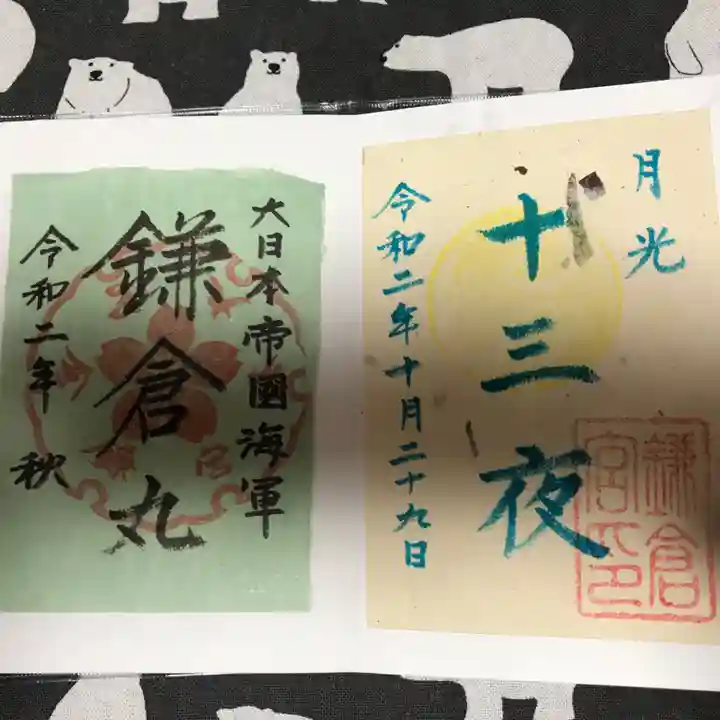 月光
十三夜
令和二年十月二十九日
鎌倉
宮印
大日本帝國海軍
鎌倉丸
令和二年 秋